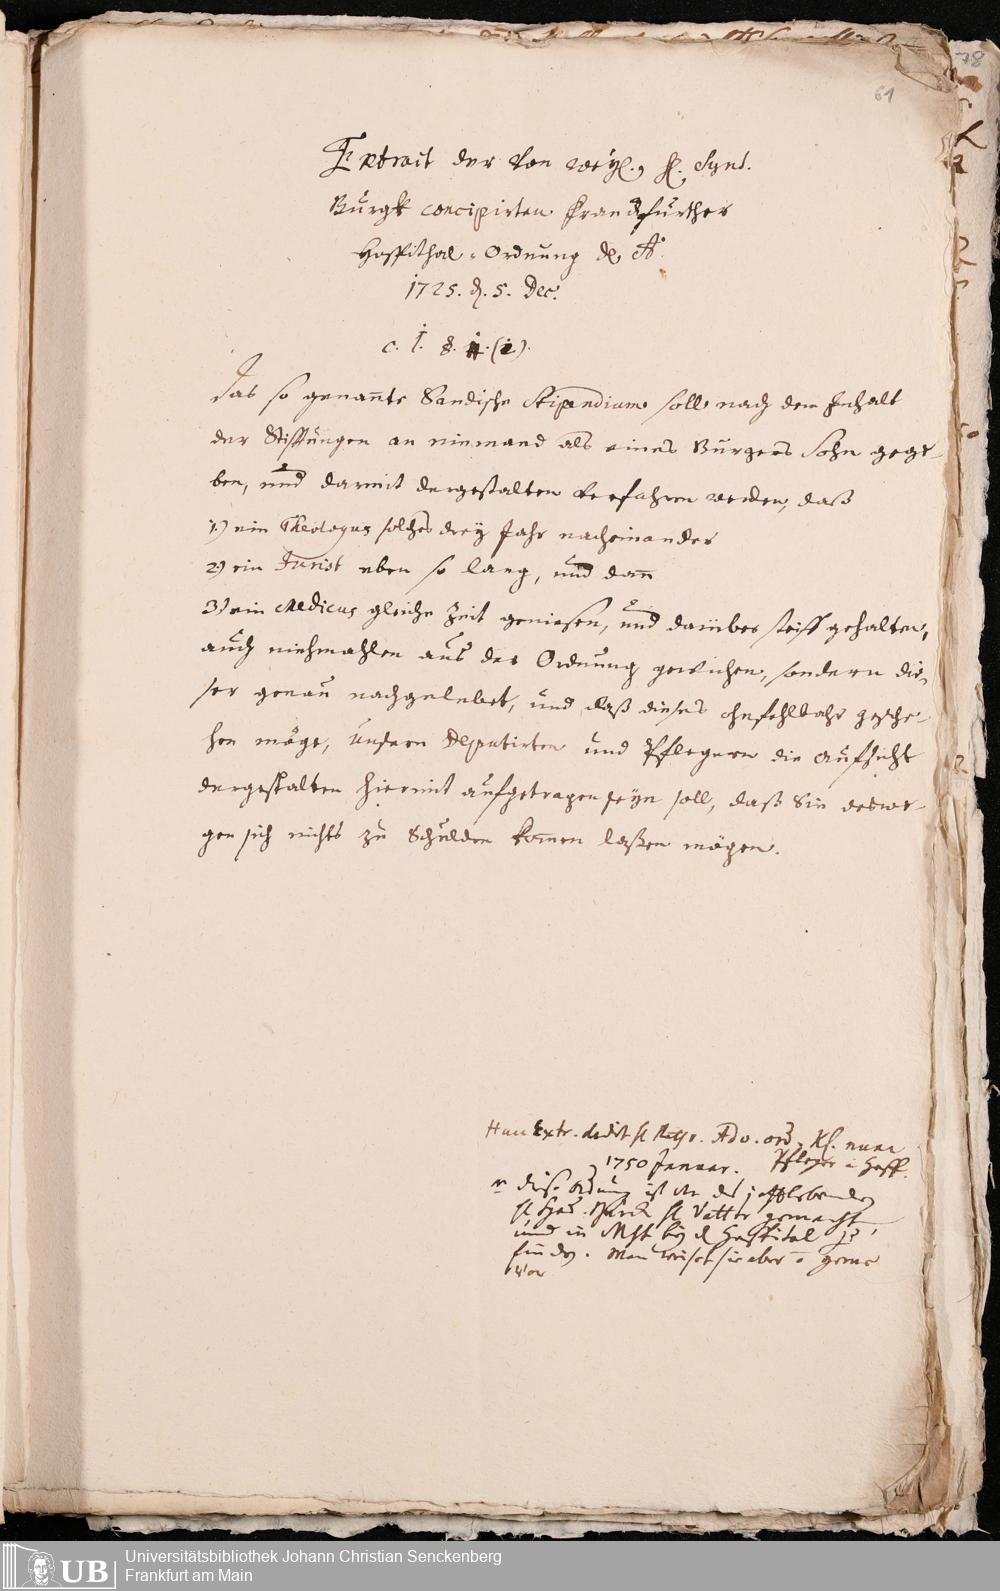 78
61
Extrait der von weyl. H. Synd.
Burgk concipirten Franckfurther
Hospithal-Ordnung de A°
1725. d. 5. Dec.
c. I. §.
Das so genannte Sandische Stipendium soll nach dem Inhalt
der Stifftungen an niemand als eines Burgers Sohn gege-
ben, und darmit dergestalten verfahren werden, daß
1) ein Theologus solches drey Jahr nacheinander
2) ein Jurist eben so lang, und dann
3) ein Medicus gleiche Zeit geniesen, und darüber steiff gehalten,
auch niehmahlen aus der Ordnung gewichen, sondern die-
ser genau nachgelebet, und daß dieses ohnfehlbahr gesche-
hen möge, Unsern Deputirten und Pflegern die Aufsicht
dergestalten hiermit aufgetragen seyn soll, daß Sie deswe-
gen sich nichts zu Schulden kommen laßen mögen.
Hunc Extr. dedit H. Adv. ord. nunc
1750 Januar. Pfleger i. Hosp.
diese Ordnung ist von des jetztlebenden
H. Vatter gemacht,
und in Mst bey d. Hospital zu
finden. Man weiset sie aber gerne
vor
Universitätsbibliothek Johann Christian Senckenberg
Frankfurt am Main
UB